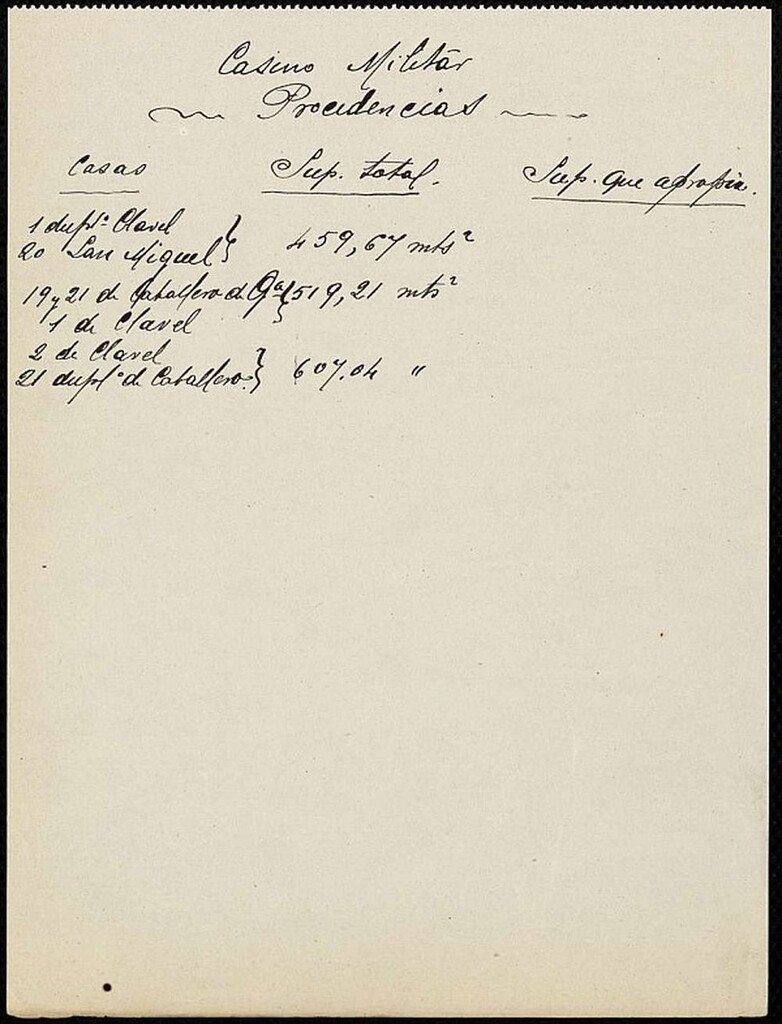 Casino Militár
Procedencias
Casas Sup. total. Sup. que apropia.
1 dupl.º Clavel
20 San Miguel } 459,67 mts²
19 y 21 de Caballero de Gª } 519,21 mts²
1 de Clavel
2 de Clavel
21 dupl.º de Caballero } 607.04 "